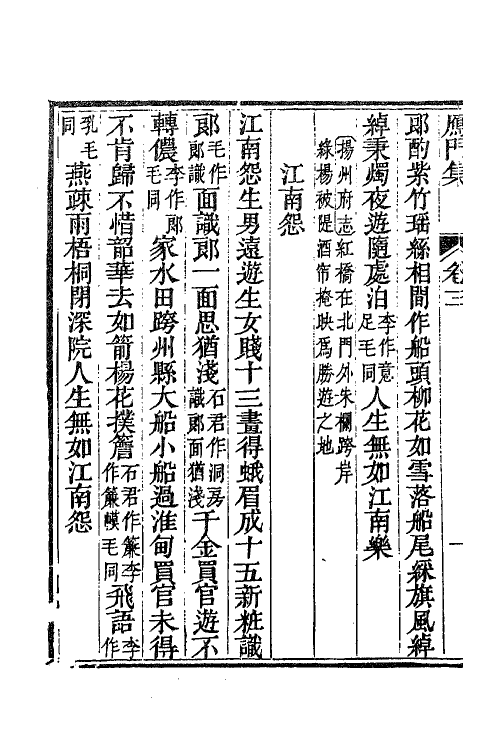 鴈門集 卷三 一
郎酌紫竹瑶絲相間作船頭柳花如雪落船尾綵旗風綽
綽秉燭夜遊隨處泊李作意足毛同人生無如江南樂
揚州府志紅橋在北門外朱欄跨岸
綠楊被隄酒帘掩映爲勝遊之地
江南怨
江南怨生男遠遊生女賤十三畫得蛾眉成十五新粧識
郎毛作郎識面識郎一面思猶淺石君作洞房識郎面猶淺千金買官遊不
轉儂李作郎毛同家水田跨州縣大船小船過淮甸買官未得
不肯歸不惜韶華去如箭楊花撲簷石君作簾李作簾幙毛同飛語李作
乳毛同燕疎雨梧桐閉深院人生無如江南怨